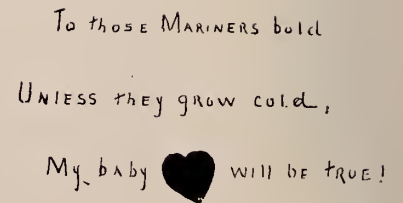 To those MARINERS bold
UNLESS they GROW cold,
My baby ♥ will be TRUE!